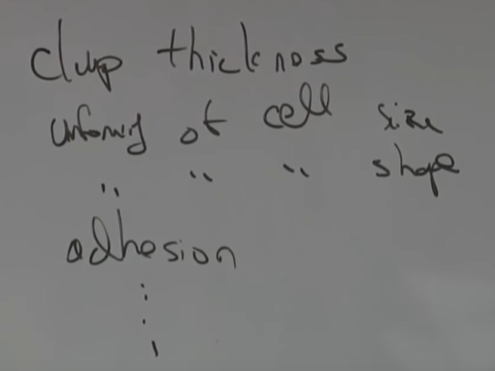 clup thickness
unformiy of cell size
" " " shape
adhesion